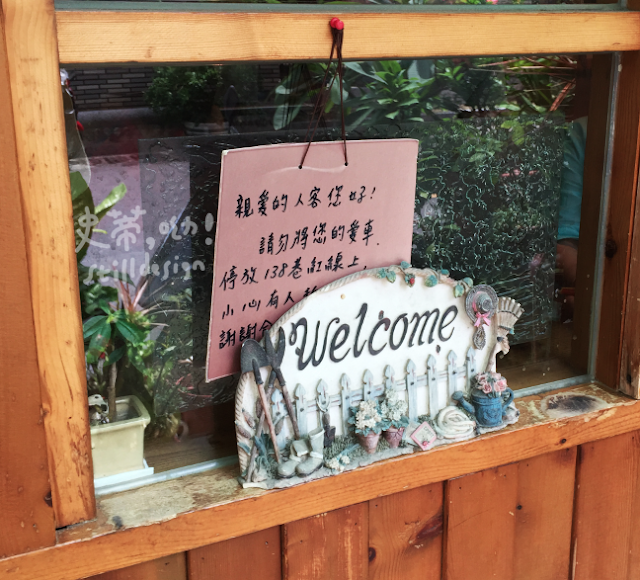 親愛的人客您好!
請勿將您的愛車.
停放138巷紅線上
小心有人
謝謝
Welcome
史蒂,ㄉㄞ!
stilldesign